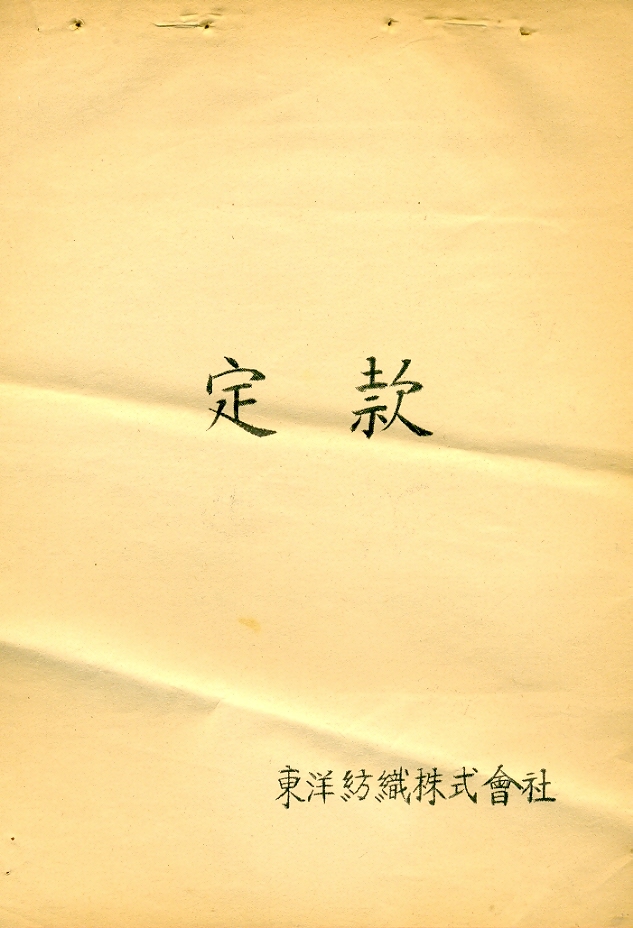 定款
東洋紡織株式會社